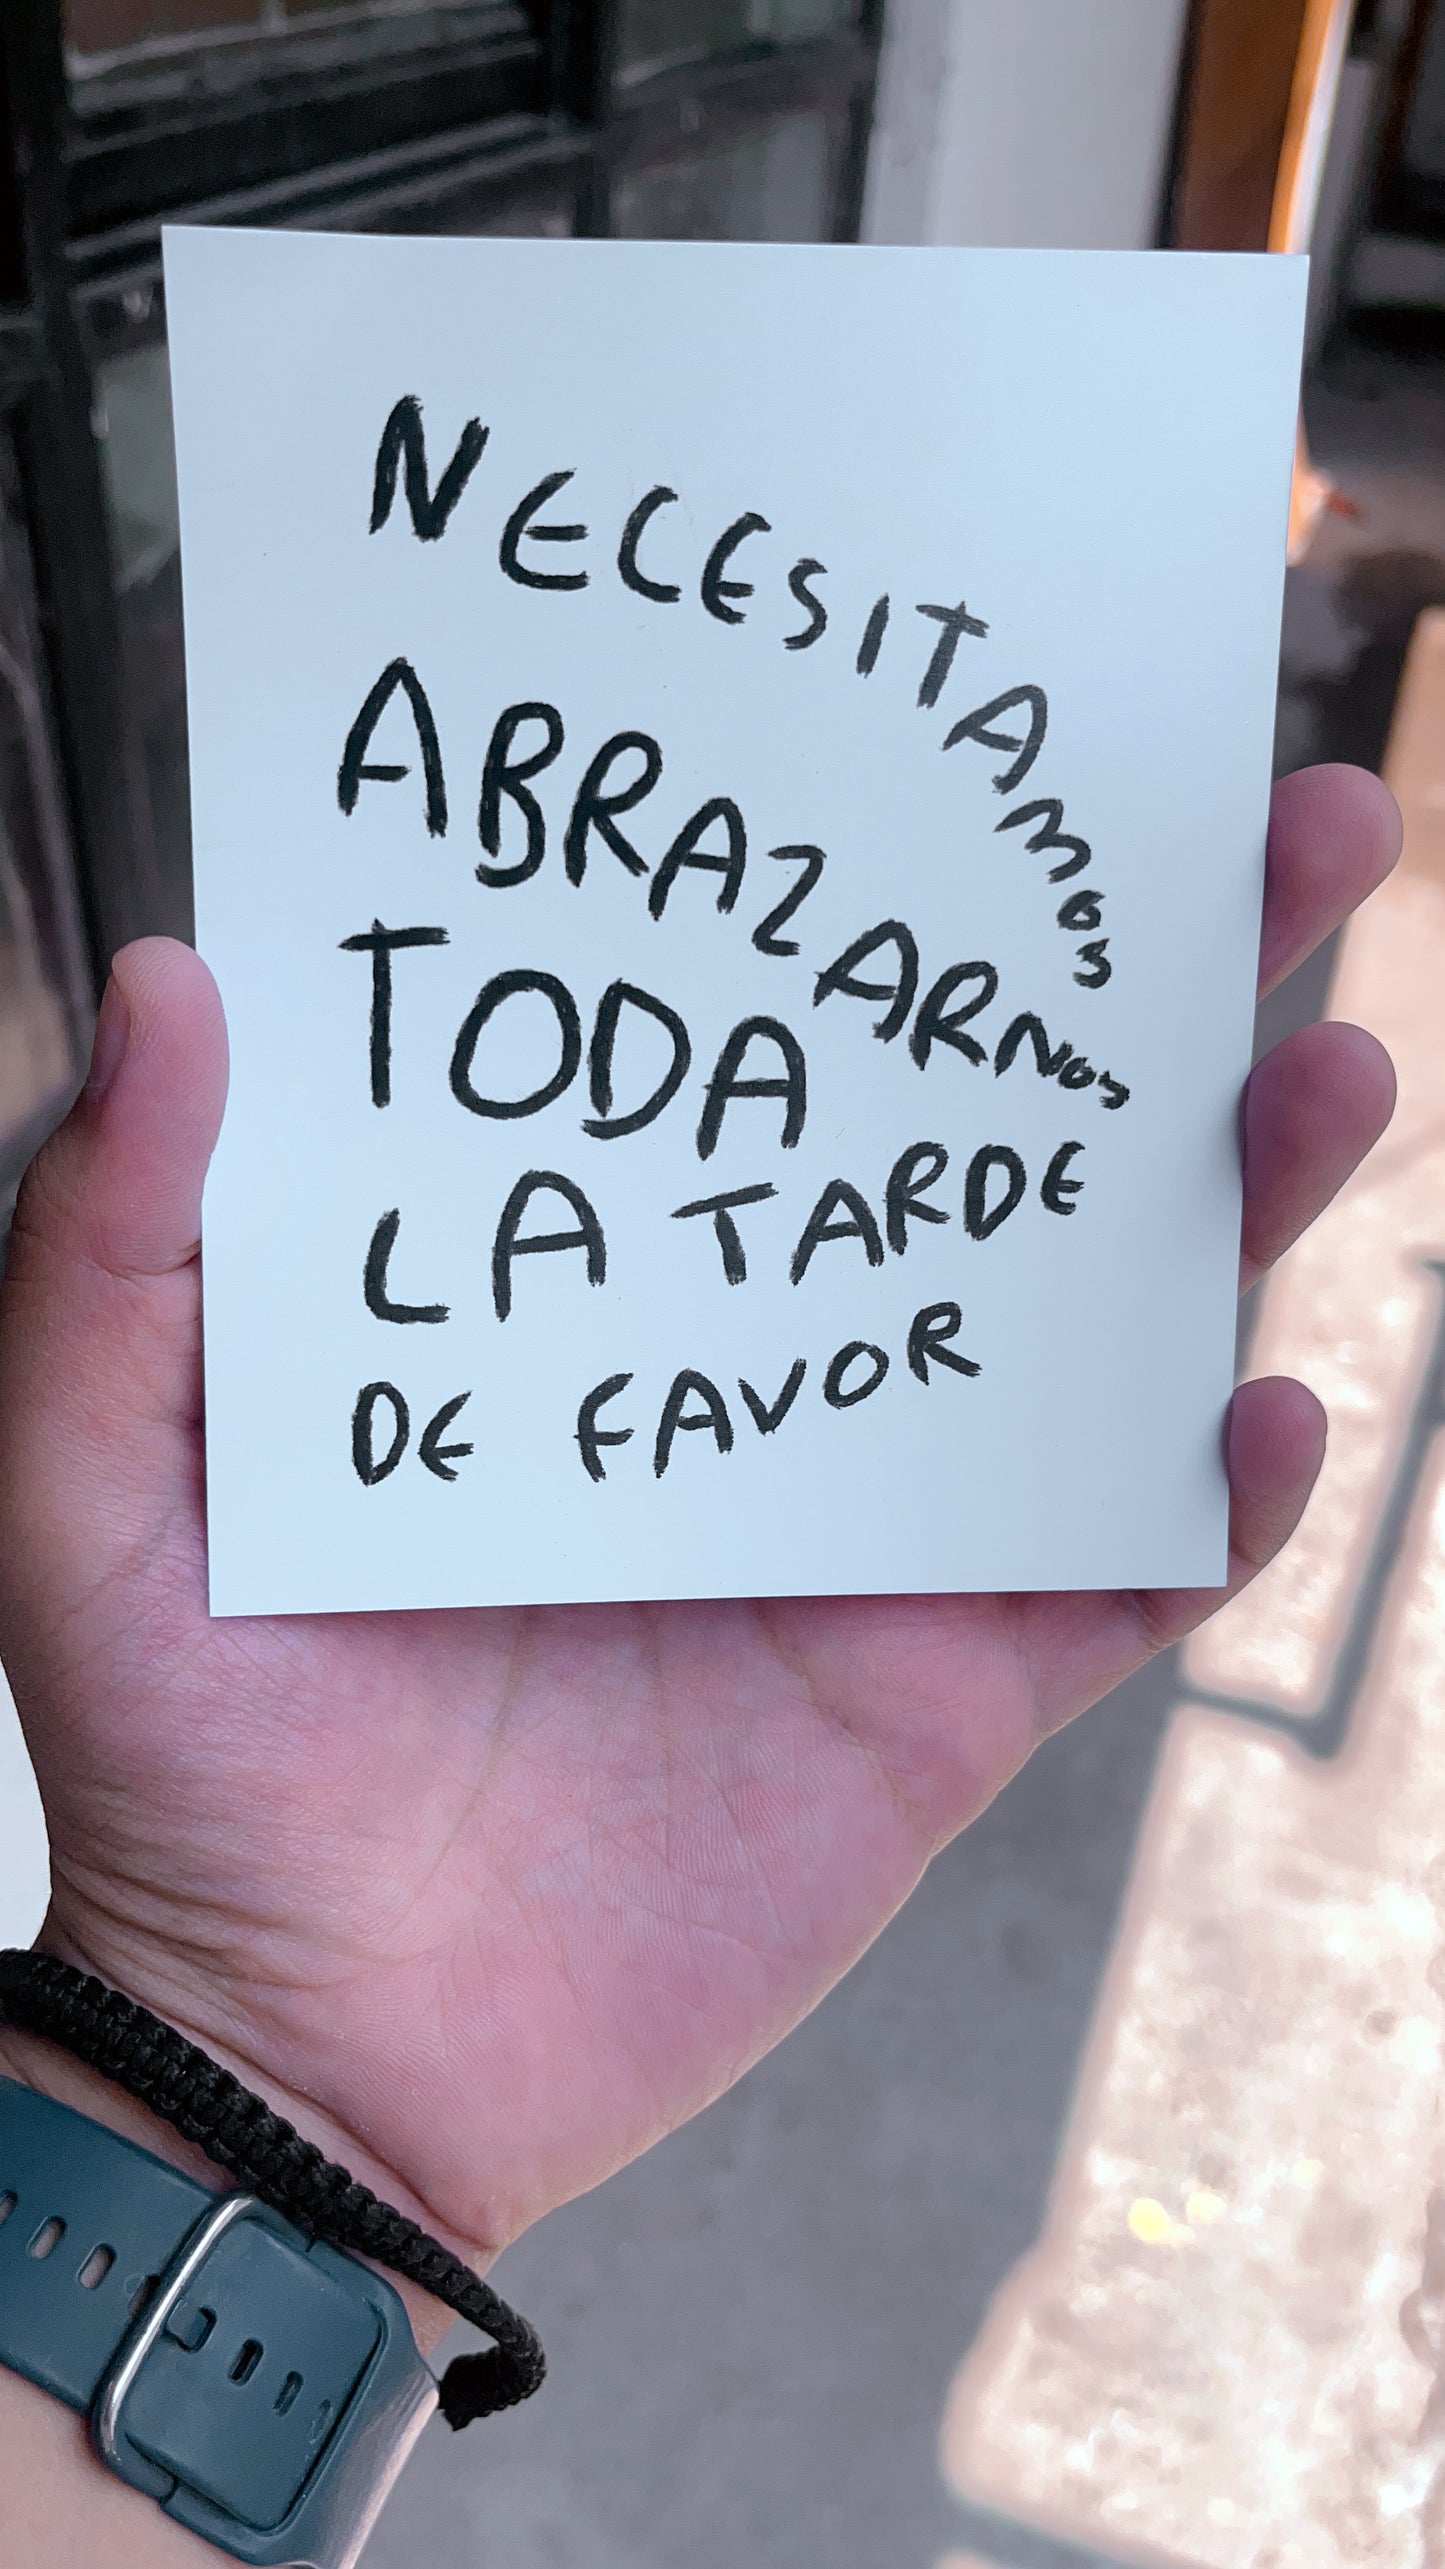 NECESITAMOS
ABRAZARNOS
TODA
LA TARDE
DE FAVOR